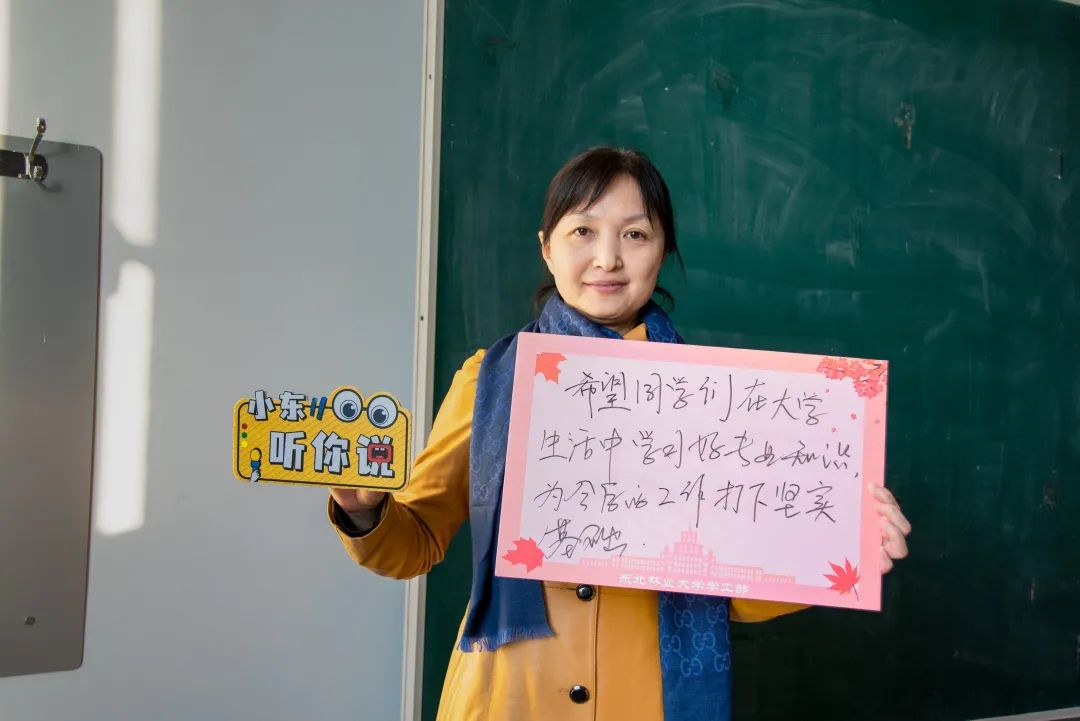 小东
听你说
希望同学们在大学
生活中学习好专业知识，
为今后的工作打下坚实
基础.
东北林业大学学工部